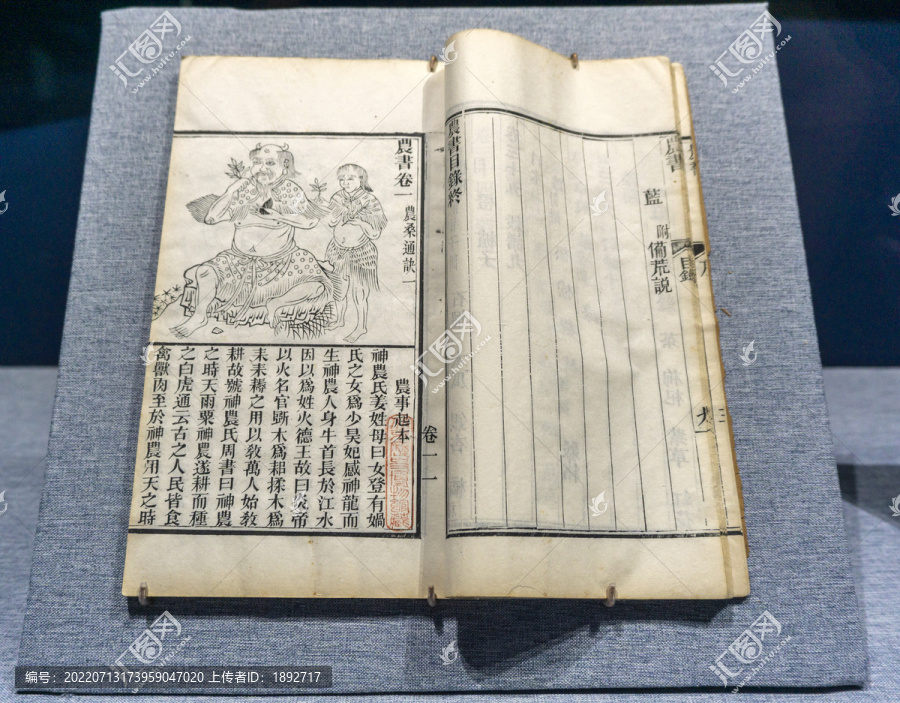 農書目錄終
藍
附
備荒說
農書
目錄
農書卷一
農桑通訣一
農事起本
神農氏姜姓母曰女登有媧
氏之女爲少昊妃感神龍而
生神農人身牛首長於江水
因以爲姓火德王故曰炎帝
以火名官斲木爲耜揉木爲
耒耒耨之用以敎萬人始敎
耕故號神農氏周書曰神農
之時天雨粟神農遂耕而種
之白虎通云古之人民皆食
禽獸肉至於神農用天之時
卷一
一
汇图网
www.huitu.com
编号：20220713173959047020 上传者ID：1892717